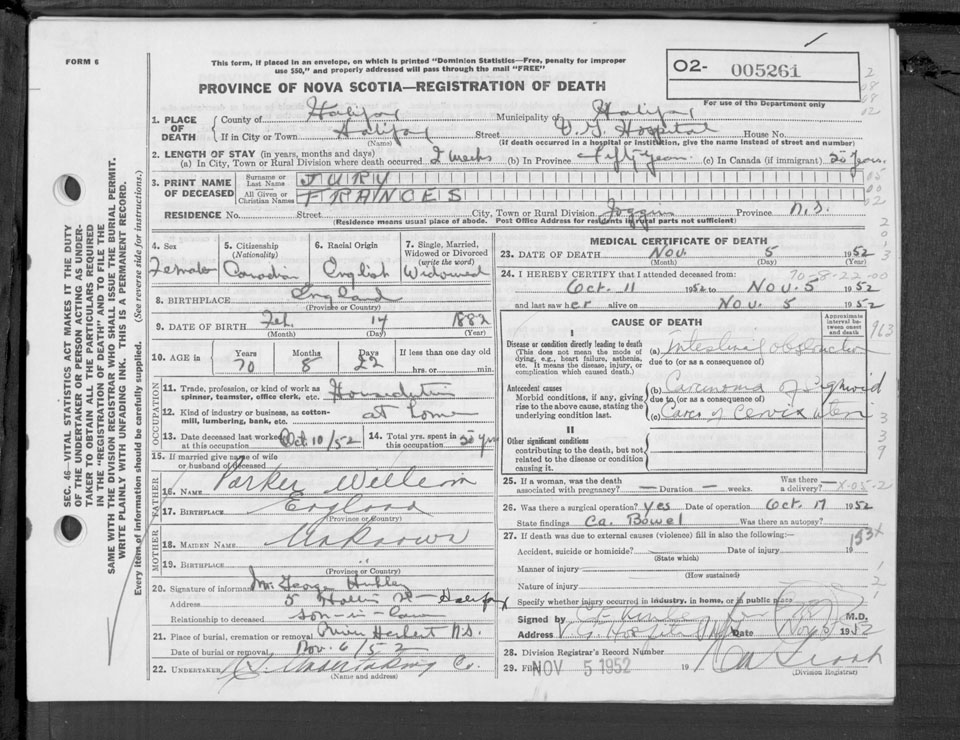 FORM 6
This form, if placed in an envelope, on which is printed "Dominion Statistics—Free, penalty for improper
use $50," and properly addressed will pass through the mail "FREE"
O2- 005261
PROVINCE OF NOVA SCOTIA—REGISTRATION OF DEATH
For use of the Department only
1. PLACE OF DEATH
County of Halifax Municipality of Halifax
If in City or Town Halifax Street V. G. Hospital House No.
(Name) (If death occurred in a hospital or institution, give the name instead of street and number)
2. LENGTH OF STAY (in years, months and days)
(a) In City, Town or Rural Division where death occurred 2 weeks (b) In Province Fifty years (c) In Canada (if immigrant) 50 years
3. PRINT NAME OF DECEASED
Surname or Last Name JURY
All Given or Christian Names FRANCES
RESIDENCE No. Street City, Town or Rural Division Joggins Province N.S.
(Residence means usual place of abode. Post Office Address for residents in rural parts not sufficient)
4. Sex Female
5. Citizenship (Nationality) Canadian
6. Racial Origin English
7. Single, Married, Widowed or Divorced (write the word) Widowed
8. BIRTHPLACE England
(Province or Country)
9. DATE OF BIRTH Feb. 14 1882
(Month) (Day) (Year)
10. AGE in Years Months Days If less than one day old
70 8 22 hrs. or min.
OCCUPATION
11. Trade, profession or kind of work as
spinner, teamster, office clerk, etc.
12. Kind of industry or business, as cotton-
mill, lumbering, bank, etc. at home
13. Date deceased last worked at this occupation Oct. 10/52
14. Total yrs. spent in this occupation 50 yrs
15. If married give name of wife
or husband of deceased
FATHER
16. NAME Parker William
17. BIRTHPLACE England
(Province or Country)
MOTHER
18. MAIDEN NAME Unknown
19. BIRTHPLACE "
(Province or Country)
20. Signature of informant Mr. George
Address 5 Hollis St - Halifax
Relationship to deceased son-in-law
21. Place of burial, cremation or removal River Herbert N.S.
Date of burial or removal Nov. 6/52
22. UNDERTAKER N.S. Undertaking Co.
(Name and address)
MEDICAL CERTIFICATE OF DEATH
23. DATE OF DEATH Nov. 5 1952
(Month) (Day) (Year)
24. I HEREBY CERTIFY that I attended deceased from: 70-8-22-00
Oct. 11 1952 to Nov. 5 1952
and last saw her alive on Nov. 5 1952
CAUSE OF DEATH
Approximate interval between onset and death
I
Disease or condition directly leading to death
(This does not mean the mode of
dying, e.g., heart failure, asthenia,
etc. It means the disease, injury, or
complication which caused death.)
(a) Intestinal obstruction
due to (or as a consequence of)
Antecedent causes
Morbid conditions, if any, giving
rise to the above cause, stating the
underlying condition last.
(b) Carcinoma of Sigmoid
due to (or as a consequence of)
(c) Carc. of Cervix uteri
II
Other significant conditions
contributing to the death, but not
related to the disease or condition
causing it.
25. If a woman, was the death
associated with pregnancy? — Duration — weeks. Was there a delivery? —
26. Was there a surgical operation? Yes Date of operation Oct. 17 1952
State findings Ca. Bowel Was there an autopsy?
27. If death was due to external causes (violence) fill in also the following:—
Accident, suicide or homicide? Date of injury 19
(State which)
Manner of injury
(How sustained)
Nature of injury
Specify whether injury occurred in industry, in home, or in public place
Signed by M.D.
Address Date Nov 5 1952
28. Division Registrar's Record Number
29. Filed NOV 5 1952 19
(Division Registrar)
SEC. 46—VITAL STATISTICS ACT MAKES IT THE DUTY
OF THE UNDERTAKER OR PERSON ACTING AS UNDER-
TAKER TO OBTAIN ALL THE PARTICULARS REQUIRED
IN THE "REGISTRATION OF DEATH" AND TO FILE THE
SAME WITH THE DIVISION REGISTRAR WHO SHALL ISSUE THE BURIAL PERMIT.
WRITE PLAINLY WITH UNFADING INK. THIS IS A PERMANENT RECORD.
Every item of information should be carefully supplied. (See reverse side for instructions.)